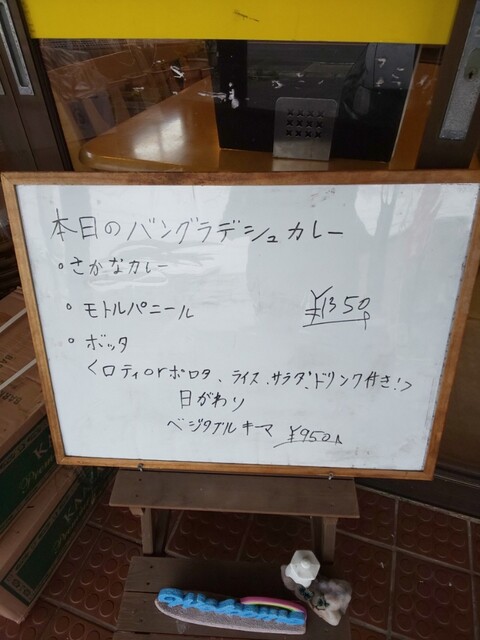 本日のバングラデシュカレー
・さかなカレー
・モトルパニール ¥1350
・ボッタ
<ロティorポロタ、ライス、サラダ、ドリンク付き!>
日がわり
ベジタブルキーマ ¥950